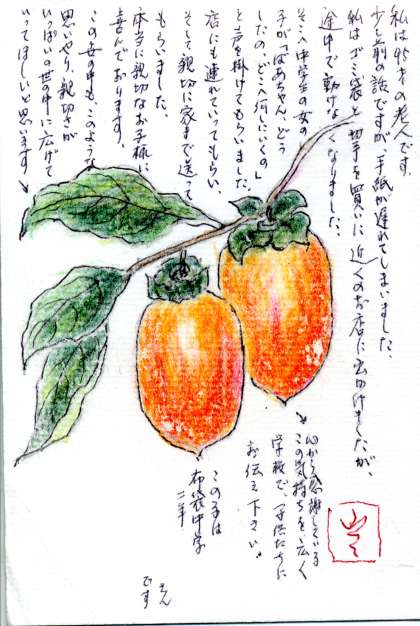 私は95才の老人です。
少し前の話ですが、手紙が遅れてしまいました、
私はゴミ袋と切手を買いに近くのお店に出かけましたが、
途中で動けなくなりました、
そこへ中学生の女の
子が「ばあちゃん、どう
したの、どこへ何しにいくの」
と声を掛けてもらいました、
店にも連れていってもらい、
そして親切に家まで送って
もらいました。
本当に親切なお子様に
喜んでおります。
この世の中も、このような
思いやり、親切さが
いっぱいの世の中に広げて
いってほしいと思います
心から感謝している
この気持ちを、広く
学校で、子供たちに
お伝え下さい。
この子は
布袋中学
二年
さん
です